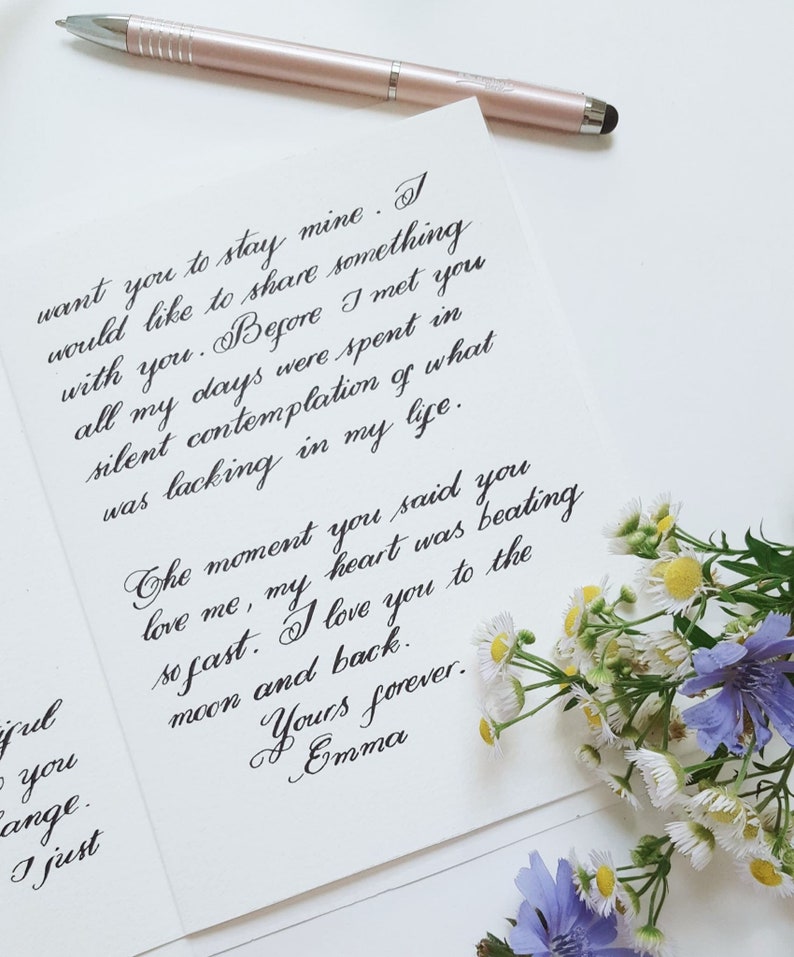 iful
you
ange.
I just
want you to stay mine. I
would like to share something
with you. Before I met you
all my days were spent in
silent contemplation of what
was lacking in my life.
The moment you said you
love me, my heart was beating
so fast. I love you to the
moon and back.
Yours forever.
Emma